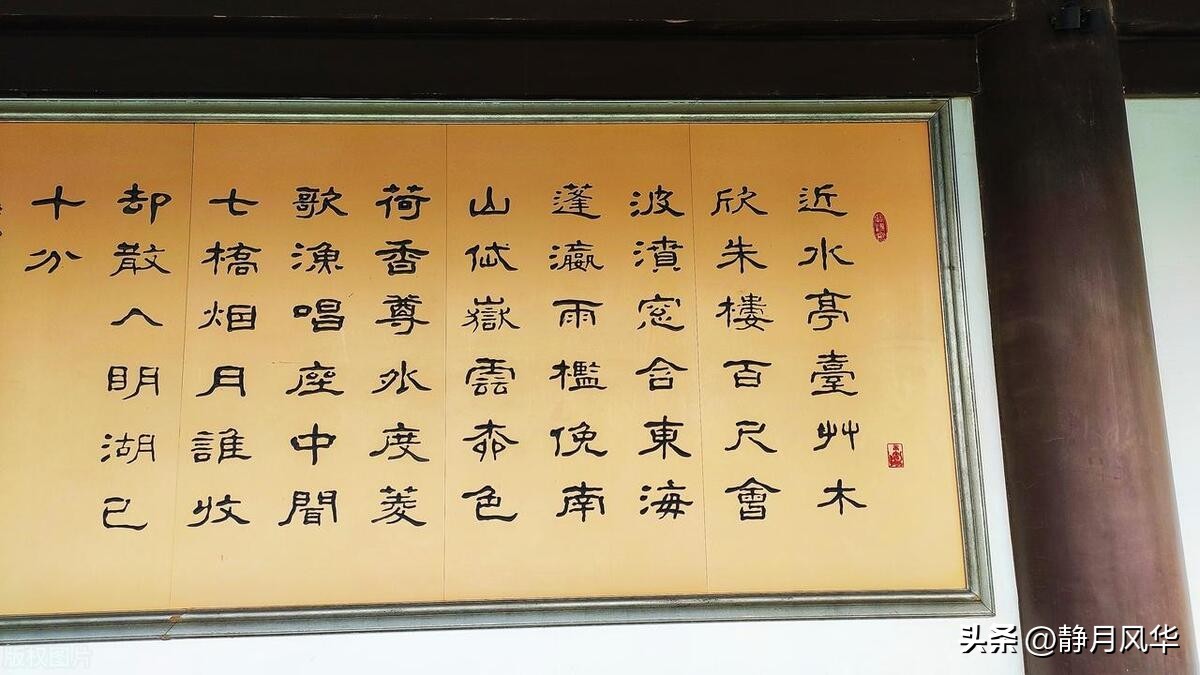 近水亭臺艸木
欣朱樓百尺會
波濆窓含東海
蓬瀛雨檻俛南
山岱嶽雲柳色
荷香尊外度菱
歌漁唱座中聞
七橋烟月誰收
却散入明湖已
十分
头条 @静月风华
版权图片